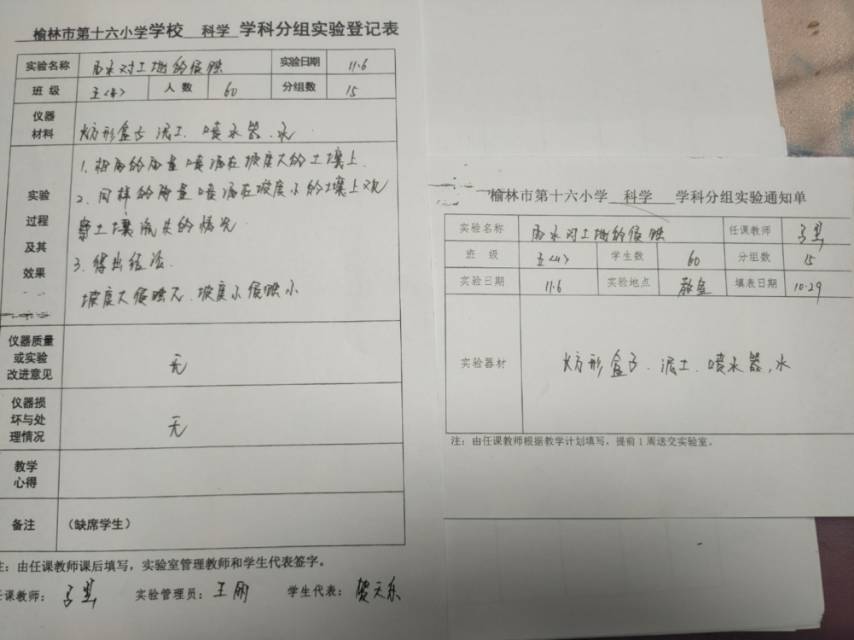 榆林市第十六小学学校 科学 学科分组实验登记表
实验名称 雨水对土地的侵蚀 实验日期 11.6
班 级 五<4> 人 数 60 分组数 15
仪器
材料
长方形盒子 泥土、喷水器、水
实验
过程
及其
效果
1. 相同的雨量喷洒在坡度大的土壤上.
2. 同样的雨量喷洒在坡度小的土壤上观
察土壤流失的情况.
3. 得出结论.
坡度大侵蚀大、坡度小侵蚀小
仪器质量
或实验
改进意见
无
仪器损
坏与处
理情况
无
教学
心得
备注 (缺席学生)
注：由任课教师课后填写，实验室管理教师和学生代表签字。
任课教师： 实验管理员：王刚 学生代表：
榆林市第十六小学 科学 学科分组实验通知单
实验名称 雨水对土地的侵蚀 任课教师
班 级 五<4> 学生数 60 分组数 15
实验日期 11.6 实验地点 填表日期 10.29
实验器材 长方形盒子、泥土、喷水器，水
注：由任课教师根据教学计划填写，提前1周送交实验室。